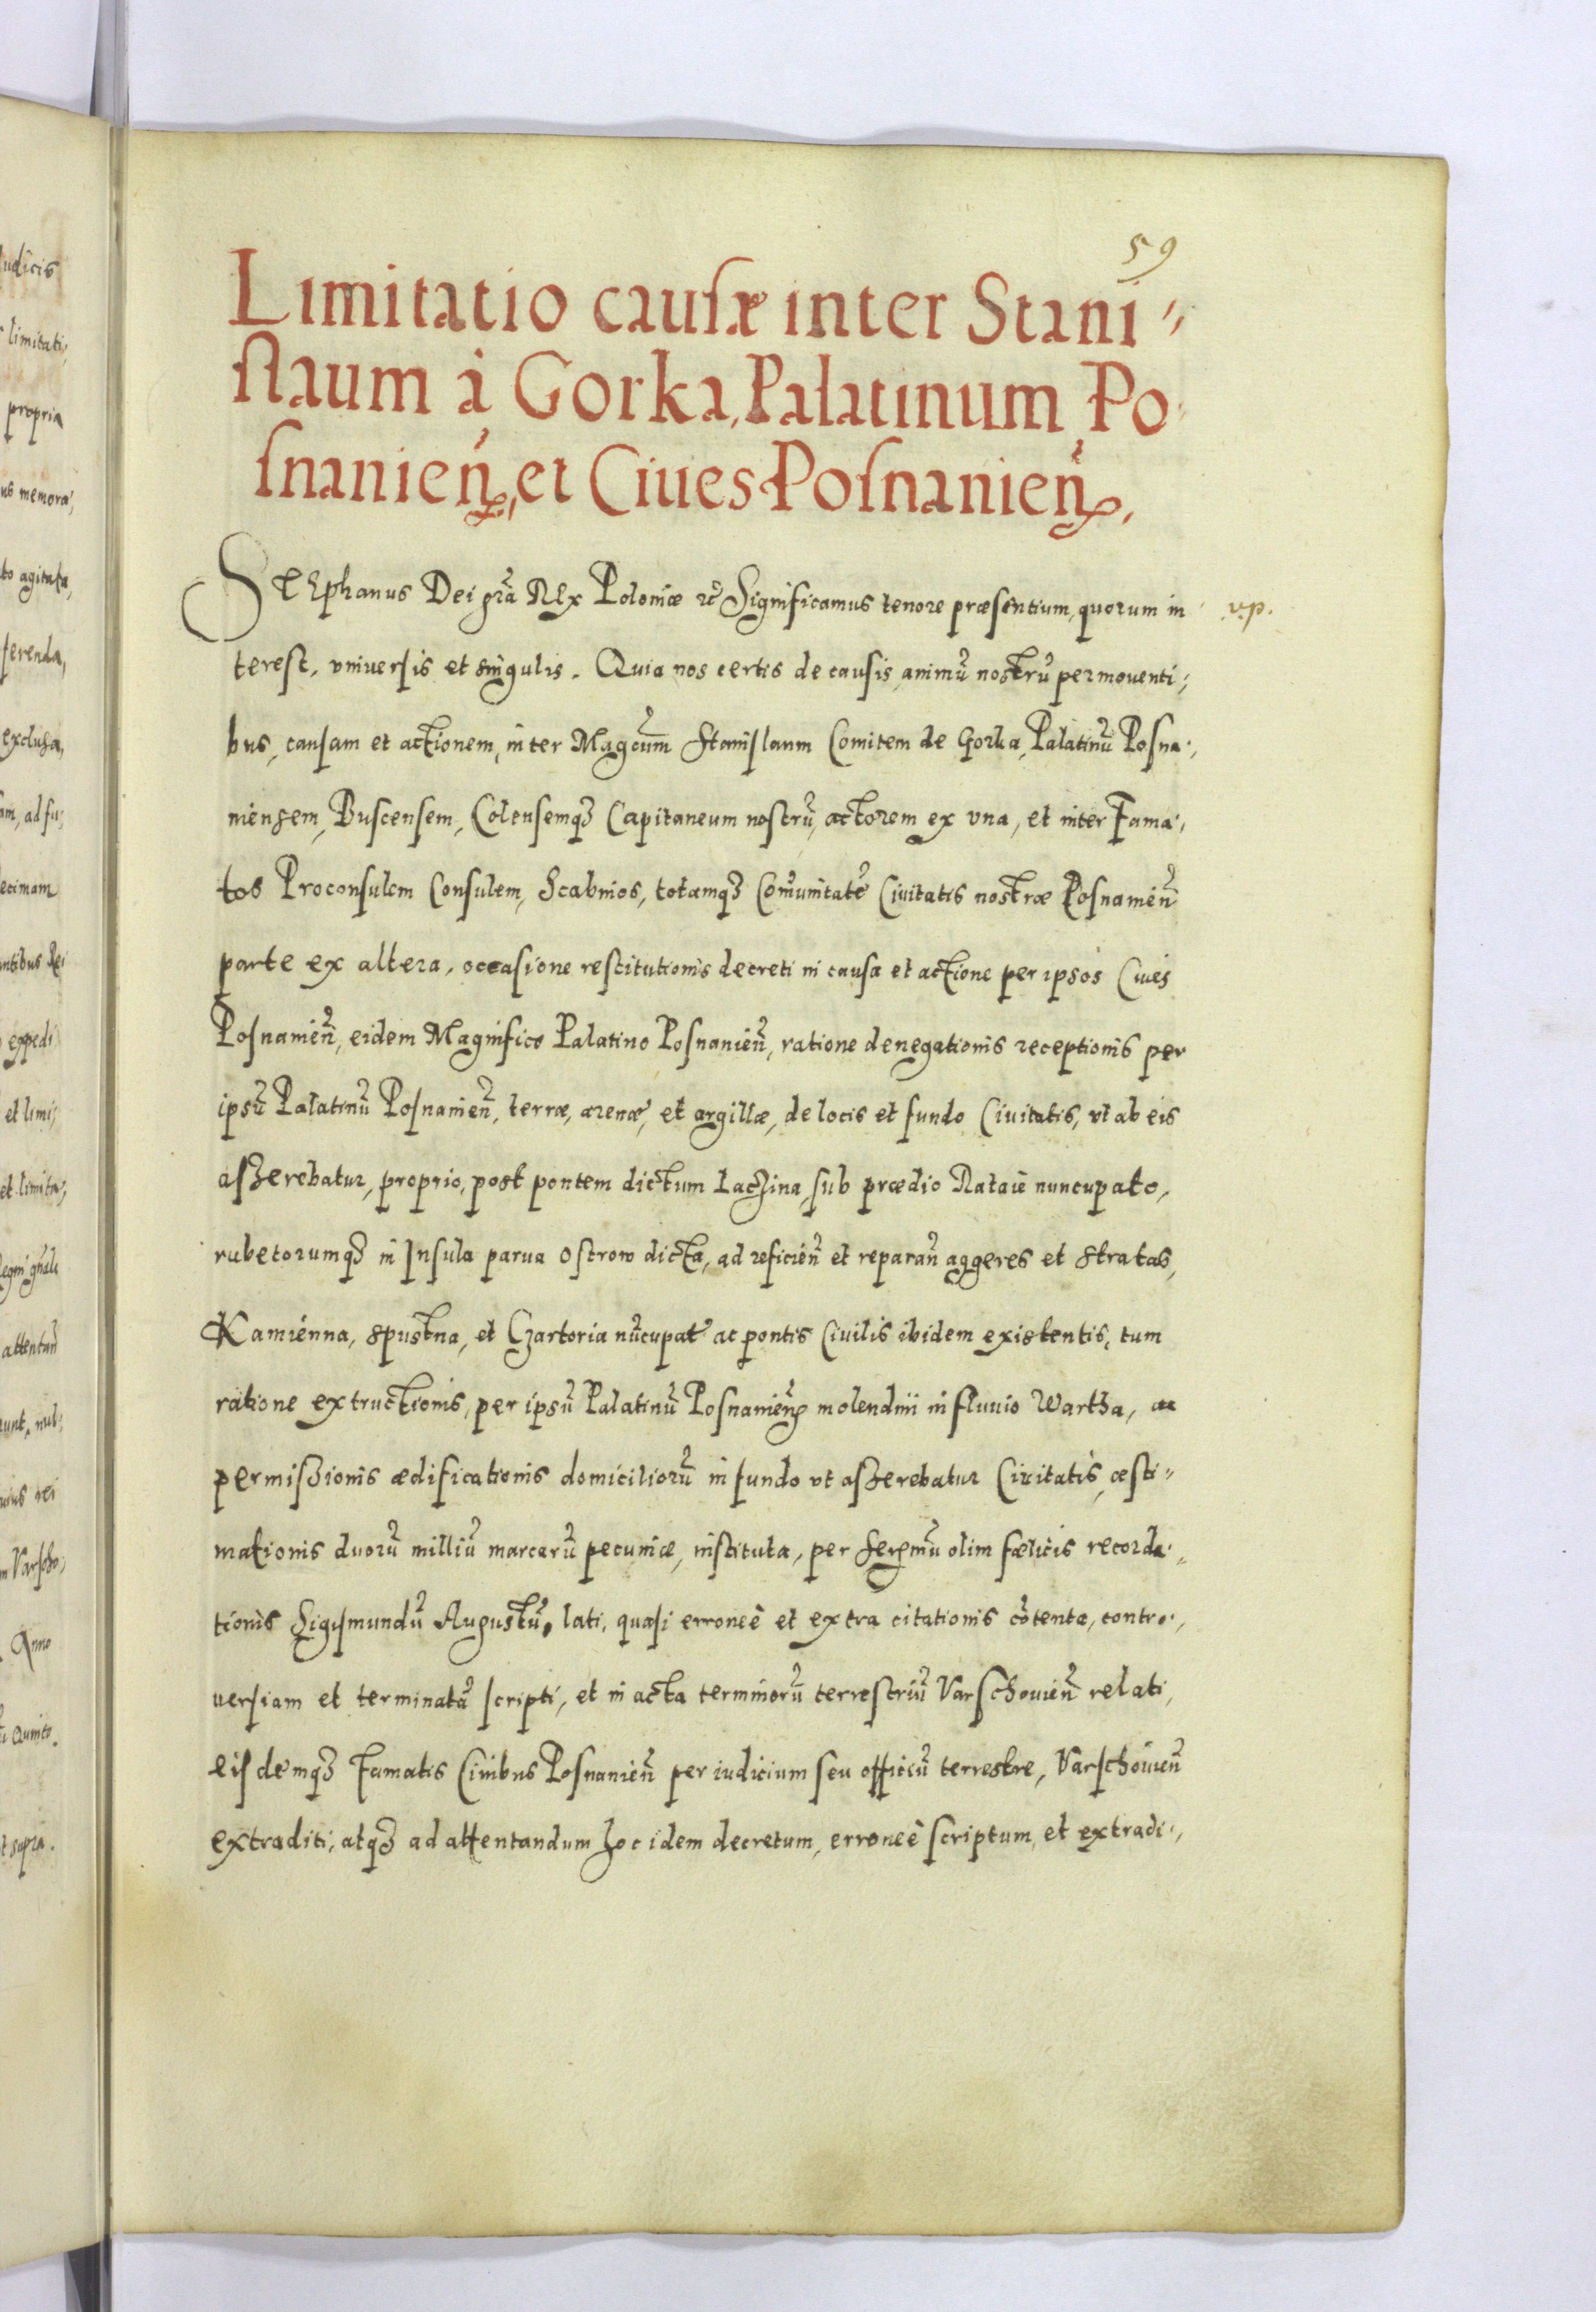 59
Limitatio causæ inter Stani„
slaum à Gorka, Palatinum Po„
snanień, et Ciues Posnanień,
STEphanus Dei gr̃a REx Poloniæ ꝛc̃ Significamus tenore præsentium, quorum in v.p.
terest, vniuersis et singulis. Quia nos certis de causis animũ nostrũ permouenti„
bus, causam et actionem, inter Magcum̃ Stanislaum Comitem de Gorka, Palatinũ Posna„
niensem, Buscensem, Colensemqꝫ Capitaneum nostrũ, actorem ex vna, et inter Fama„
tos Proconsulem Consulem, Scabinos, totamqꝫ Com̃unitatẽ Ciuitatis nostræ Posnanieñ
parte ex altera, occasione restitutionis decreti in causa et actione per ipsos Ciues
Posnanieñ, eidem Magnifico Palatino Posnanieñ, ratione denegationis receptionis per
ipsũ Palatinũ Posnanieñ, terræ, arenæ, et argillæ, de locis et fundo Ciuitatis, vt ab eis
asserebatur, proprio, post pontem dictum Laczina, sub prædio Rataie nuncupato,
rubetorumqꝫ in Insula parua Ostrow dicta, ad reficień et reparań aggeres et stratas,
Kamienna, spustna, et Czartoria nũcupat̃ ac pontis Ciuilis ibidem existentis, tum
ratione extructionis, per ipsũ Palatinũ Posnanień molendini in fluuio Wartha, ac
permissionis ædificationis domiciliorũ in fundo vt asserebatur Ciuitatis, æsti„
mationis duorũ milliũ marcarũ pecuniæ, instituta, per Serenmũ olim fælicis recorda„
tionis Sigismundũ Augustũ, lati, quasi erroneè et extra citationis cõtenta, contro„
uersiam et terminatã scripti, et in acta terminorũ terrestriũ Varschouieñ relati,
eisdemqꝫ Famatis Ciuibus Posnanieñ per iudicium seu officiũ terrestre, Varschouieñ
extraditi, atqꝫ ad attentandum hoc idem decretum, erroneè scriptum, et extradi„